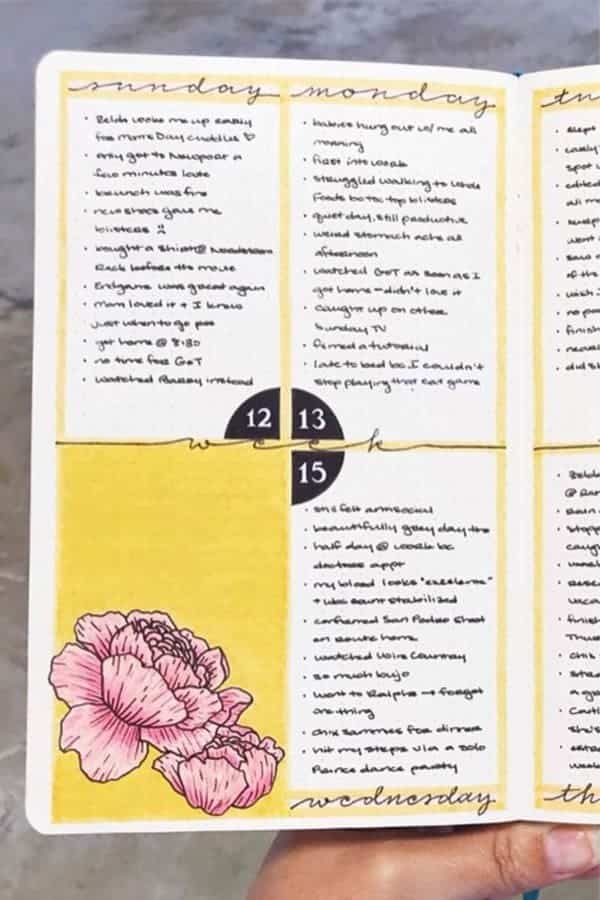 sunday
• Belda woke me up early
for Mom's Day cuddles ♡
• only got to Newport a
few minutes late
• brunch was fire
• new shoes gave me
blisters :(
• bought a shirt @ Nordstrom
Rack before the movie
• Endgame was great again
• Mom loved it + I knew
just when to go pee
• got home @ 8:30
• no time for GoT
• watched Barry instead
12
monday
• babies hung out w/ me all
morning
• first into work
• struggled walking to Whole
Foods bc toe top blisters
• quiet day, still productive
• weird stomach ache all
afternoon
• watched GoT as soon as I
got home - didn't love it
• caught up on other
Sunday TV
• filmed a tutorial
• late to bed bc I couldn't
stop playing that cat game
13
week
15
• still felt antisocial
• beautifully grey day tho
• half day @ work bc
doctor's appt
• my blood looks "excellent"
+ wbc count stabilized
• confirmed San Pedro shoot
en route home
• watched Claire
• so much bujo
• went to Ralphs → forgot
one thing
• chix sammies for dinner
• hit my steps via a solo
Prince dance party
wednesday
tu
• slept
• early
spot
• edited
all m
went
• saw
of the
• wish
• no po
• finish
• near
• did s
• Belda
@ Ran
• Rain
• stopp
caug
vaca
• finish
Thur
• chix
• stra
a g
• Cait
she's
• extra
week
th